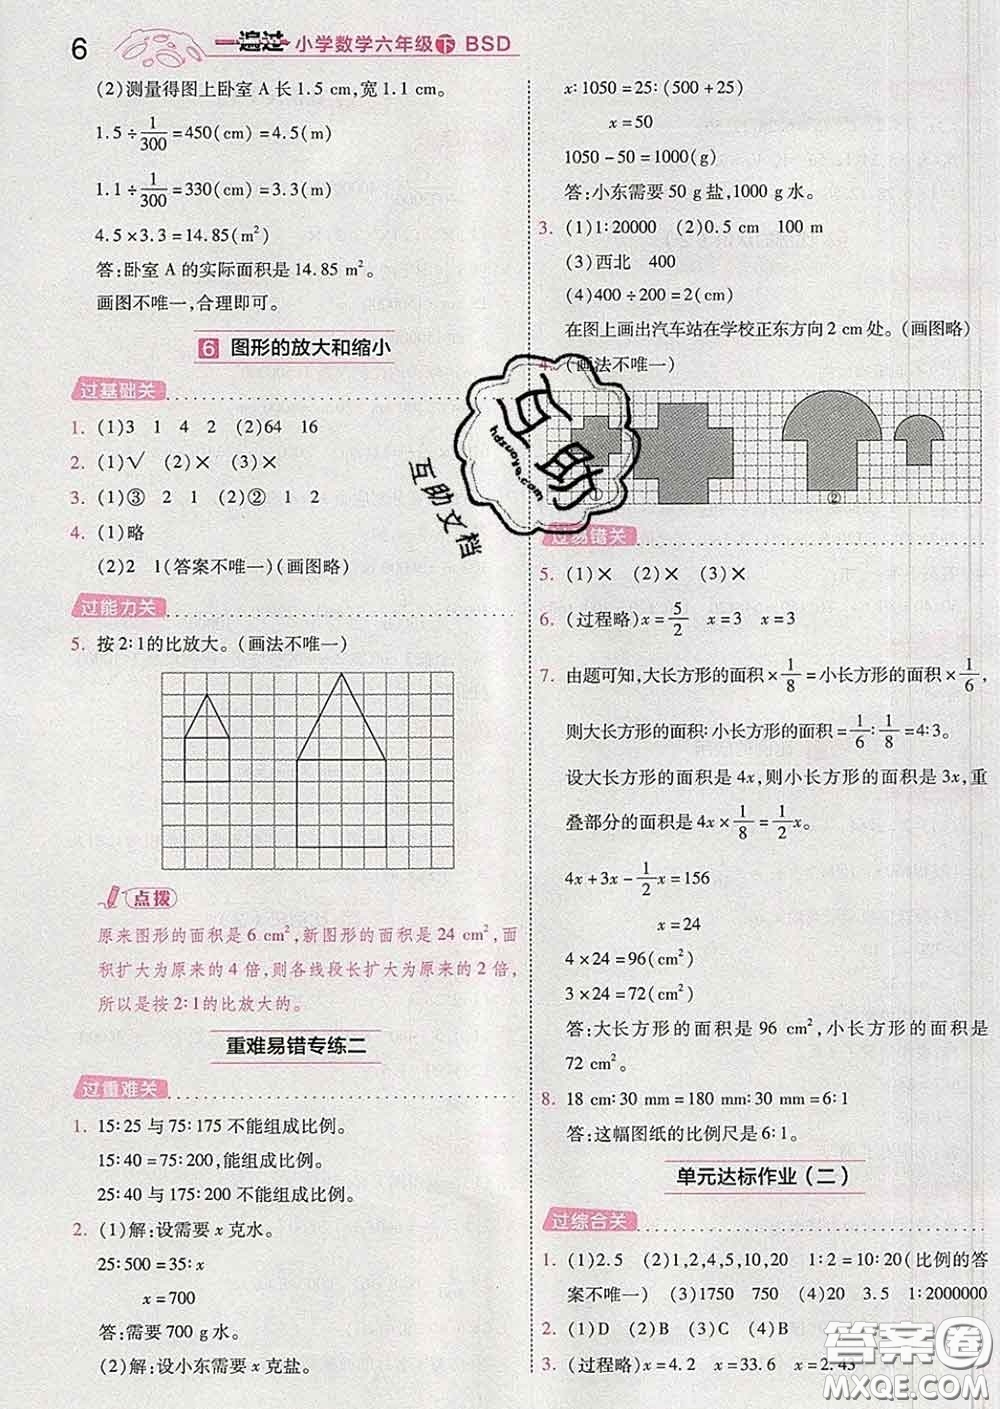 6
一遍过 小学数学六年级 下 BSD
(2)测量得图上卧室 A 长 1.5 cm,宽 1.1 cm。
1.5÷1/300=450(cm)=4.5(m)
1.1÷1/300=330(cm)=3.3(m)
4.5×3.3=14.85(m²)
答:卧室 A 的实际面积是 14.85 m²。
画图不唯一,合理即可。
6 图形的放大和缩小
过基础关
1. (1)3 1 4 2 (2)64 16
2. (1)√ (2)× (3)×
3. (1)③ 2 1 (2)② 1 2
4. (1)略
(2)2 1(答案不唯一)(画图略)
过能力关
5. 按 2∶1的比放大。(画法不唯一)
点拨
原来图形的面积是 6 cm²,新图形的面积是 24 cm²,面
积扩大为原来的 4 倍,则各线段长扩大为原来的 2 倍,
所以是按 2∶1的比放大的。
重难易错专练二
过重难关
1. 15∶25 与 75∶175 不能组成比例。
15∶40=75∶200,能组成比例。
25∶40 与 175∶200 不能组成比例。
2. (1)解:设需要 x 克水。
25∶500=35∶x
x=700
答:需要 700 g 水。
(2)解:设小东需要 x 克盐。
x∶1050=25∶(500+25)
x=50
1050-50=1000(g)
答:小东需要 50 g 盐,1000 g 水。
3. (1)1∶20000 (2)0.5 cm 100 m
(3)西北 400
(4)400÷200=2(cm)
在图上画出汽车站在学校正东方向 2 cm 处。(画图略)
4. (画法不唯一)
①
②
过易错关
5. (1)× (2)× (3)×
6. (过程略)x=5/2 x=3 x=3
7. 由题可知,大长方形的面积×1/8=小长方形的面积×1/6,
则大长方形的面积∶小长方形的面积=1/6∶1/8=4∶3。
设大长方形的面积是 4x,则小长方形的面积是 3x,重
叠部分的面积是 4x×1/8=1/2x。
4x+3x-1/2x=156
x=24
4×24=96(cm²)
3×24=72(cm²)
答:大长方形的面积是 96 cm²,小长方形的面积是
72 cm²。
8. 18 cm∶30 mm=180 mm∶30 mm=6∶1
答:这幅图纸的比例尺是 6∶1。
单元达标作业(二)
过综合关
1. (1)2.5 (2)1,2,4,5,10,20 1∶2=10∶20(比例的答
案不唯一) (3)1750 750 (4)20 3.5 1∶2000000
2. (1)D (2)B (3)C (4)B
3. (过程略)x=4.2 x=33.6 x=2.43
互助
hdzuoye.com
互助文档
答案圈
MXQE.COM